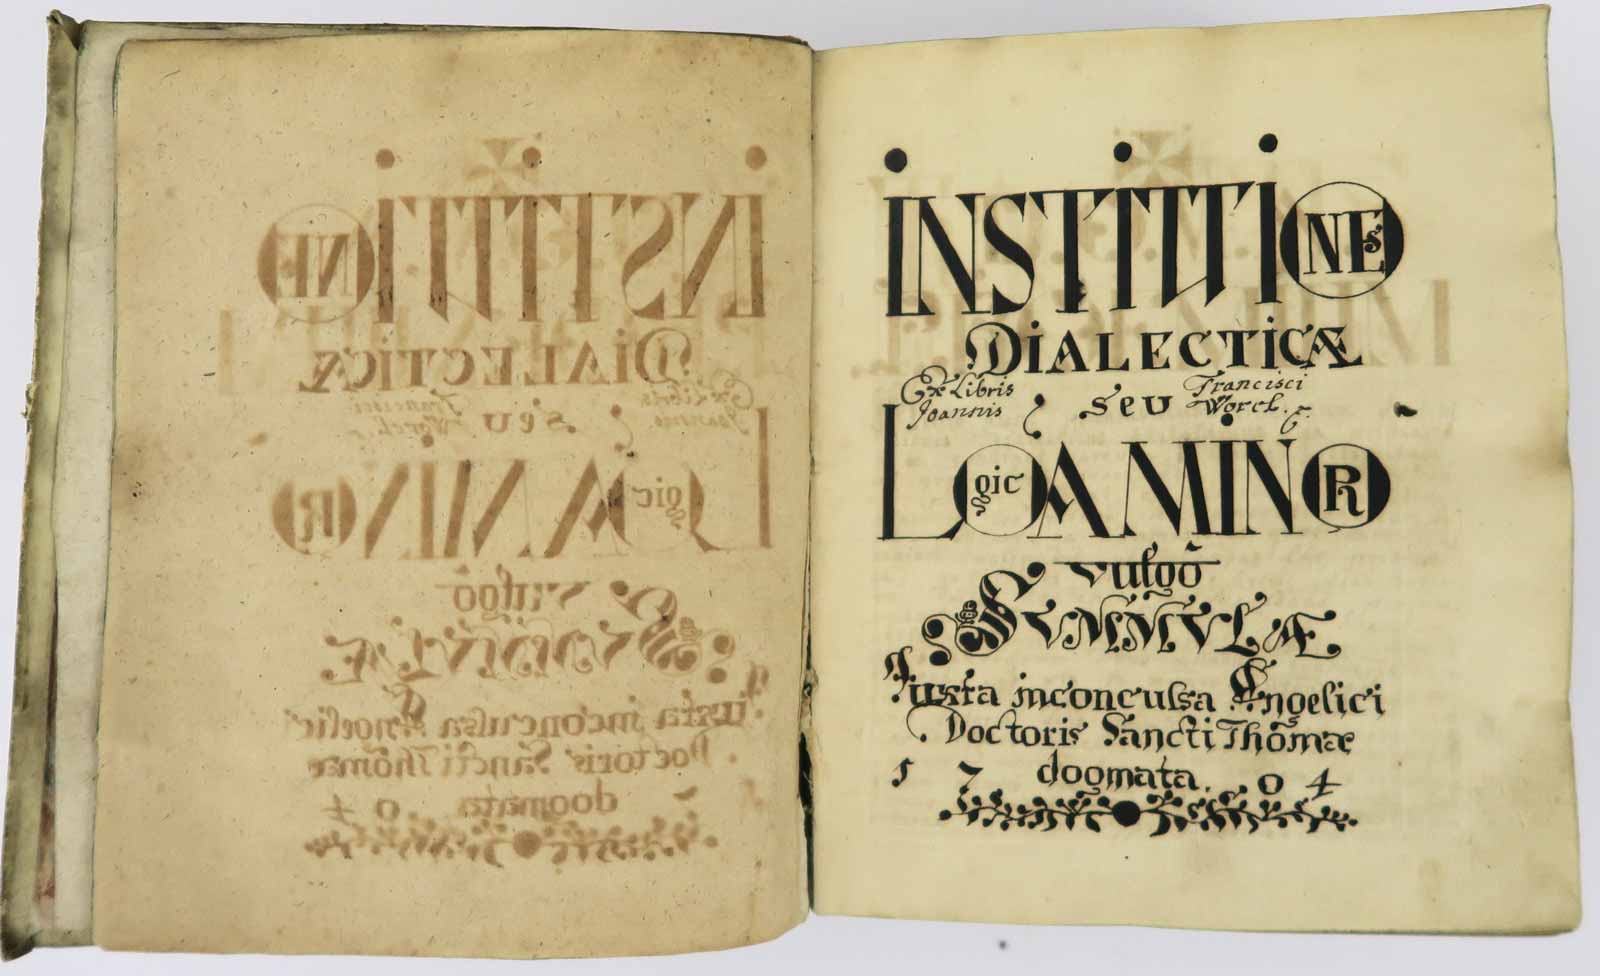 INSTITUTIONES
DIALECTICÆ
Ex Libris seu Francisci
Joannis Worel.
LOgicA MINOR
vulgò
SUMMULÆ
Iuxta inconcussa Angelici
Doctoris Sancti Thomæ
dogmata.
1 7 0 4